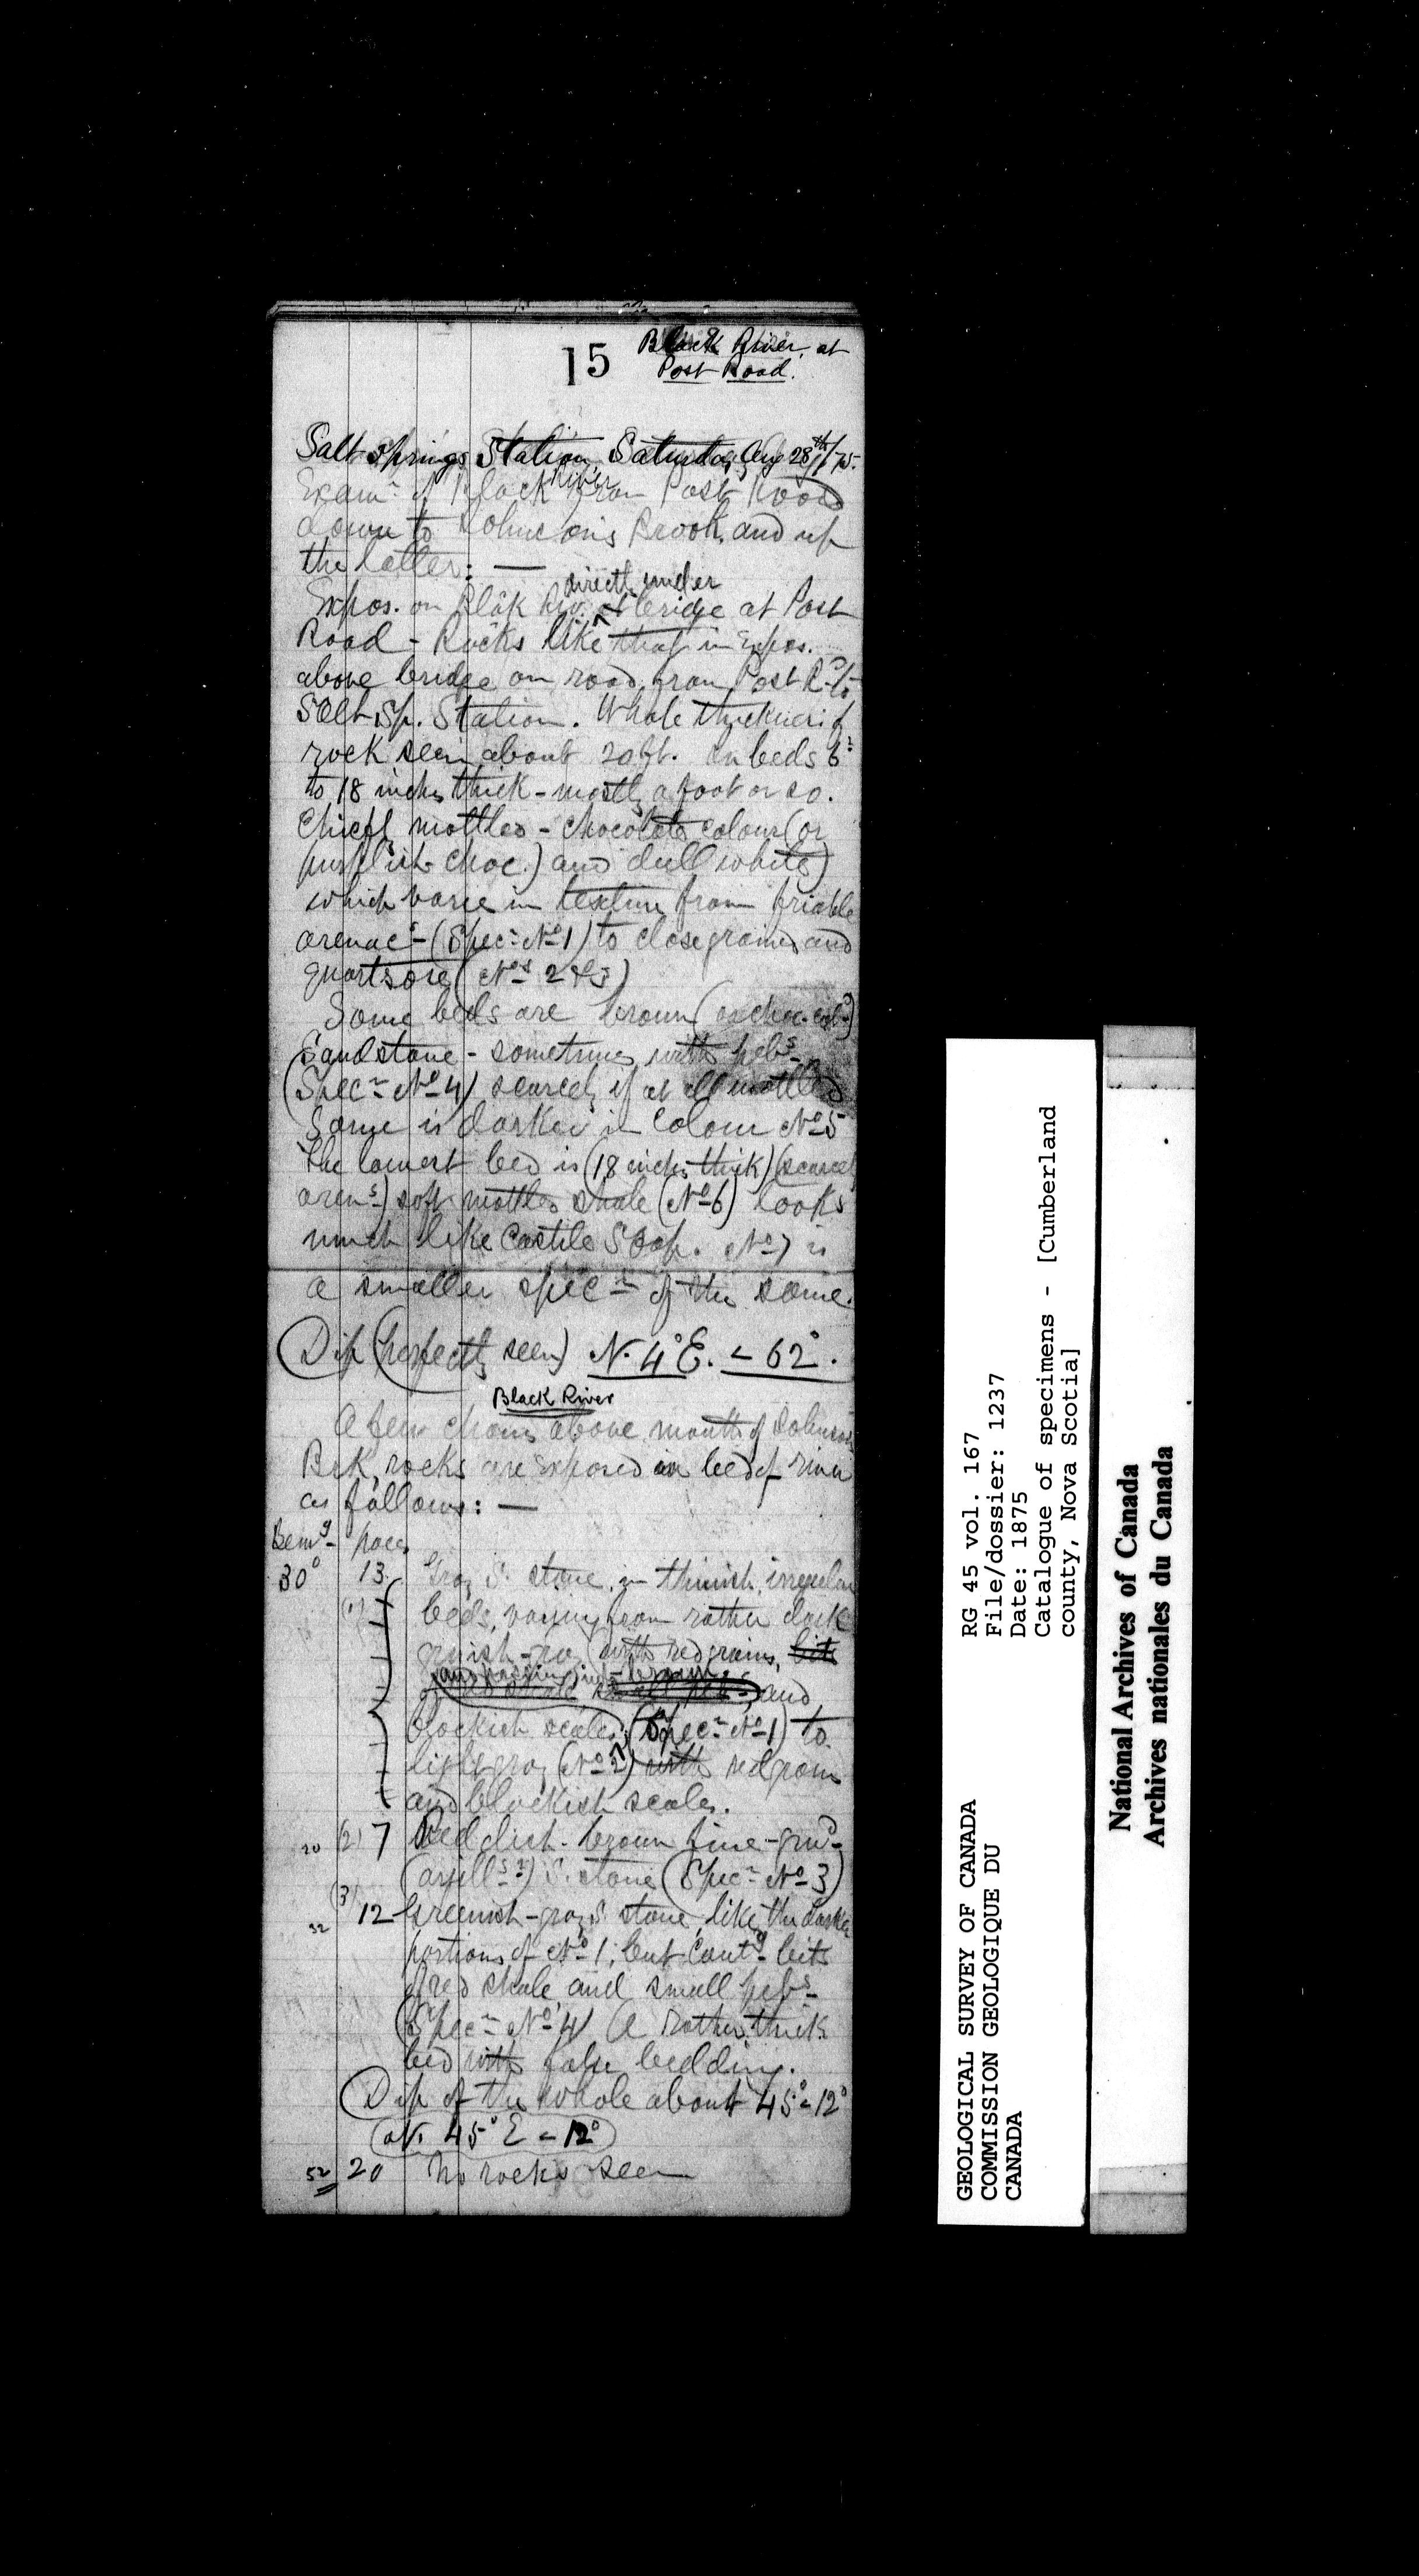 15
Black River, at
Post Road.
Salt Springs Station Saturday Aug 28th/75.
Exam.n of Black River from Post Road
down to Johnson's Brook, and up
the latter: —
directly under
Expos. on Blak Riv. at bridge at Post
Road - Rocks like that in expos.
above bridge on road from Post Rd to
Salt Sp. Station. Whole thickness of
rock seen about 20 ft. In beds 6
to 18 inches thick - mostly a foot or so.
Chiefly mottled - chocolate colour (or
purplish choc.) and dull white)
which varie in texture from friable
arenacs (Specn No 1) to close grained and
quartzose (Nos 2 & 3)
Some beds are brown (or choc. cold)
Sandstone - sometimes with pebs
(Specn No 4) scarcely if at all mottled
Some is darker in colour No 5
The lowest bed is (18 inches thick) (scarcely
arens) soft mottled shale (No 6) looks
much like Castile Soap. No 7 is
a smaller specn of the same.
Dip (perfectly seen) N. 4° E. < 62°.
Black River
A few chains above mouth of Johnson
Bek, rocks are exposed in bed of river
as follows: —
Bearg paces
30° 13 Gray S. stone, in thinish, irregular
(1) beds, varying from rather dark
grnish-gray with red grains, bits
and passing into brown
and
blackish scales, (Specn No 1) to
light gray (No 2) with red grains
and blackish scales.
20 (2) 7 Reddish-brown fine-grnd
(argills?) S. stone (Specn No 3)
32 (3) 12 Greenish-gray S. stone, like the darker
portions of No 1, but contg bits
of red shale and small pebs
(Specn No 4) A rather thick
bed with false bedding.
Dip of the whole about 45° < 12°
(N. 45° E < 12°)
52 20 No rocks seen
GEOLOGICAL SURVEY OF CANADA
COMMISSION GEOLOGIQUE DU
CANADA
RG 45 vol. 167
File/dossier: 1237
Date: 1875
Catalogue of specimens - [Cumberland
county, Nova Scotia]
National Archives of Canada
Archives nationales du Canada